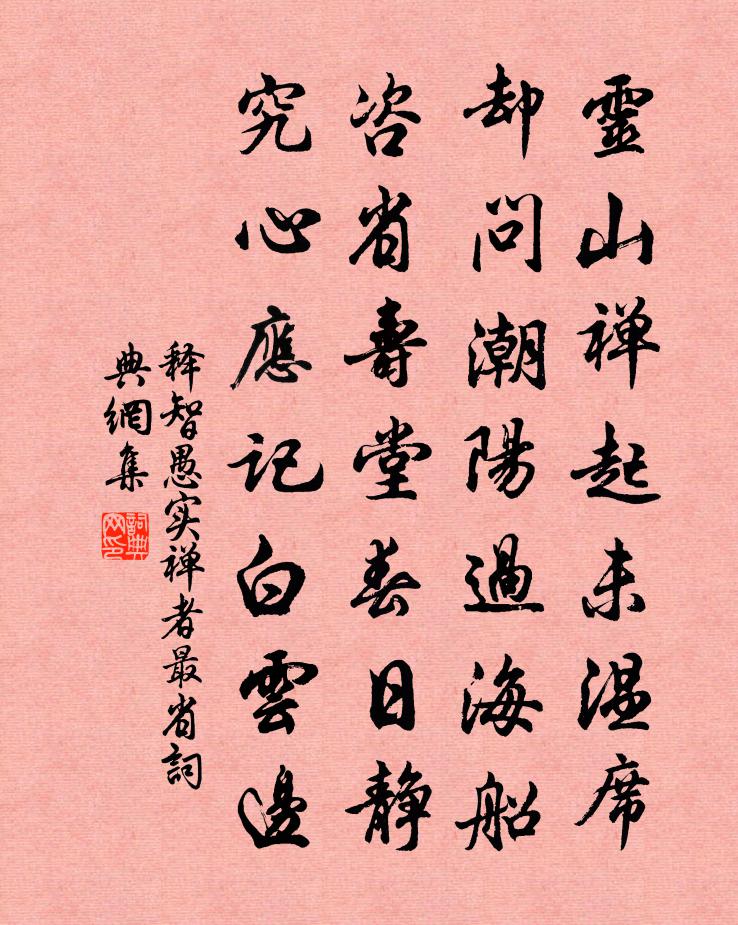 靈山禅起未温席
却問潮陽過海船
咨省壽堂春日静
究心應記白雲邊
释智愚实禅者最省詞
典網集
詞典网印